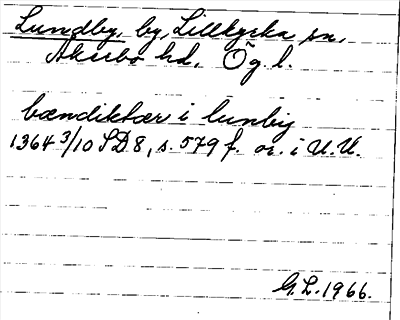 Lundby, by, Lillkyrka sn,
Åkerbo hd, Ög. l.
bændiktær i lunby
1364 3/10 SD 8, s. 579 f. or. i U.U.
G.L. 1966.